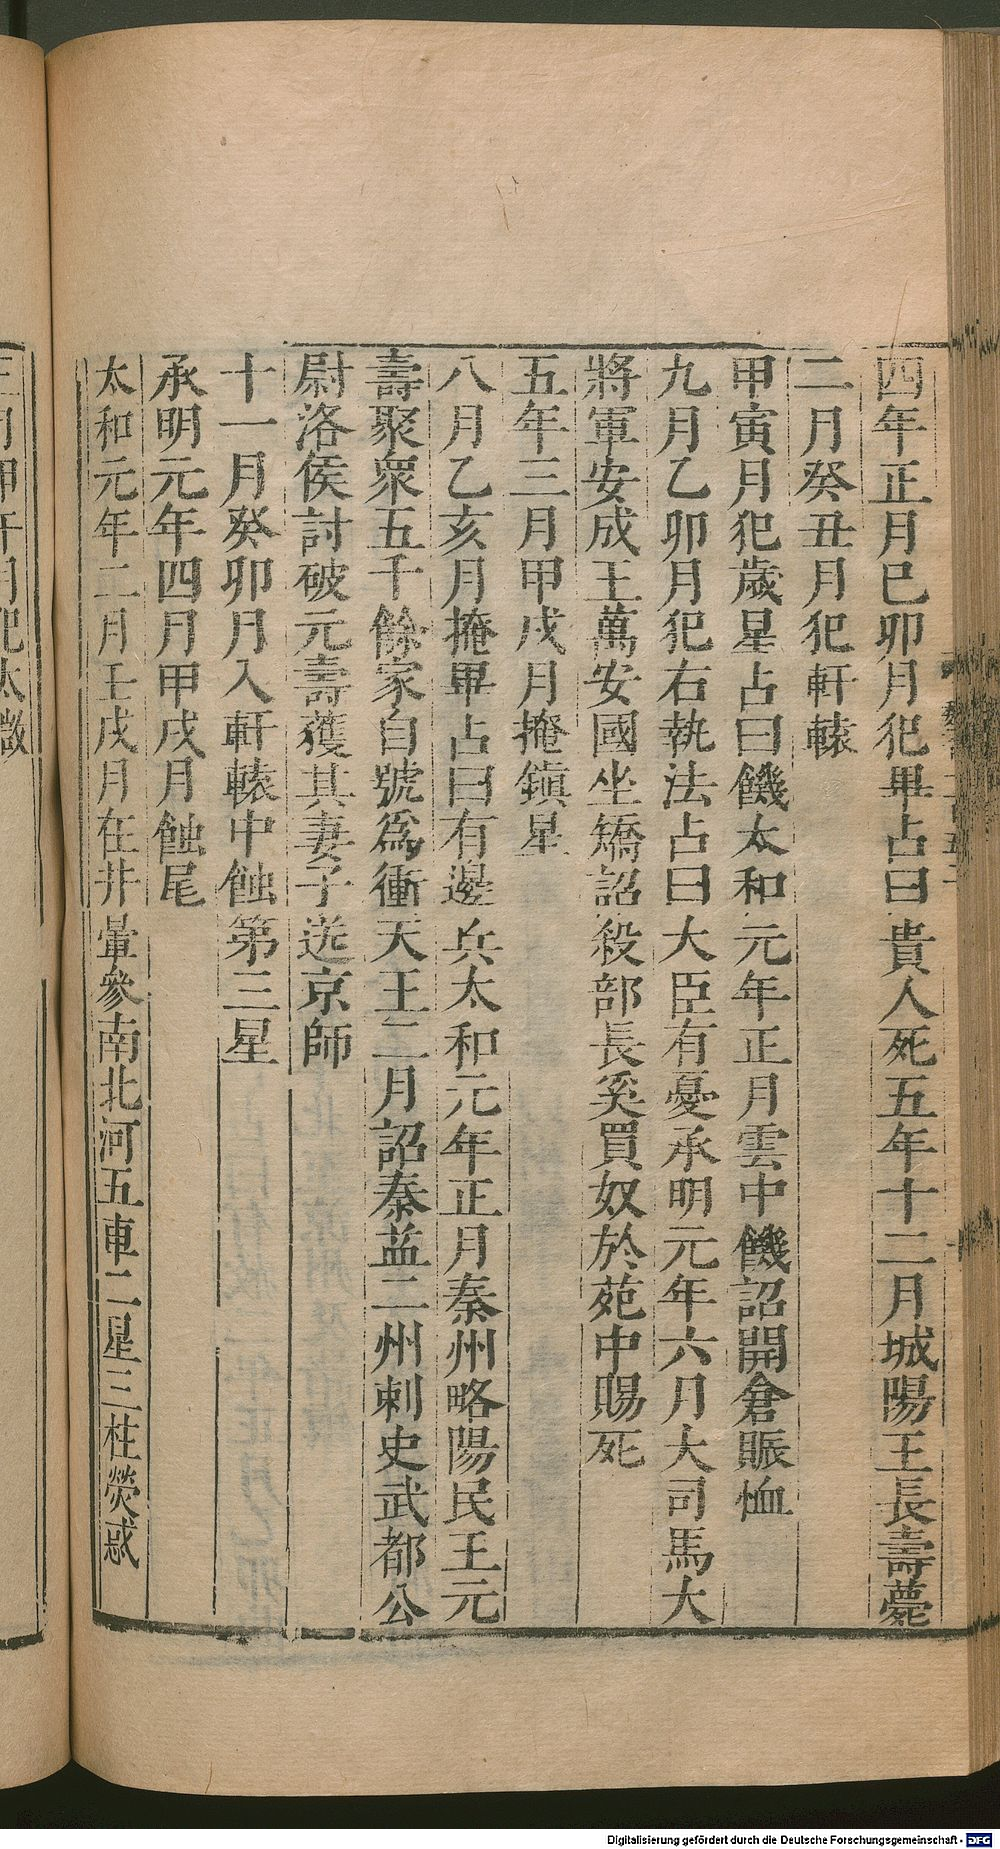 四年正月巳卯月犯畢占曰貴人死五年十二月城陽王長壽薨
二月癸丑月犯軒轅
甲寅月犯歲星占曰饑太和元年正月雲中饑詔開倉賑恤
九月乙卯月犯右執法占曰大臣有憂承明元年六月大司馬大
將軍安成王萬安國坐矯詔殺部長奚買奴於苑中賜死
五年三月甲戌月掩鎮星
八月乙亥月掩畢占曰有邊兵太和元年正月秦州略陽民王元
壽聚衆五千餘家自號爲衝天王二月詔秦益二州刺史武都公
尉洛侯討破元壽獲其妻子送京師
十一月癸卯月入軒轅中蝕第三星
承明元年四月甲戌月蝕尾
太和元年二月壬戌月在井暈參南北河五車二星三柱熒惑
三月甲午月犯太微
Digitalisierung gefördert durch die Deutsche Forschungsgemeinschaft - DFG